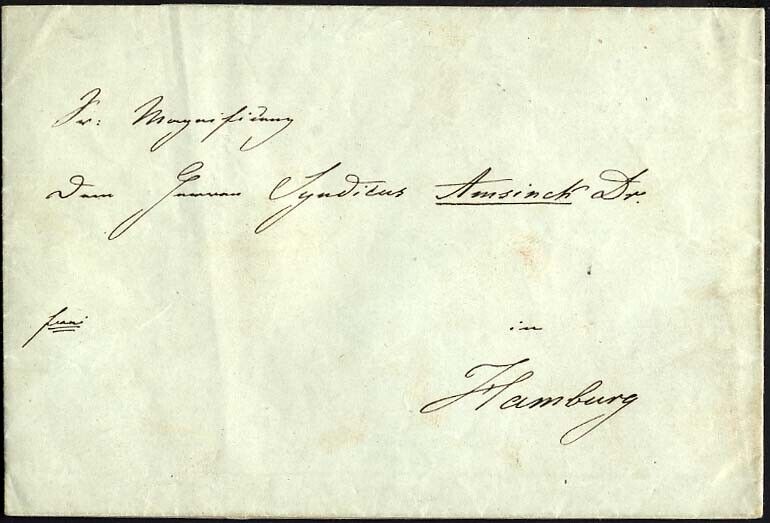 Sr: Magnificenz
Dem Herren Syndicus Amsinck Dr.
in
Hamburg